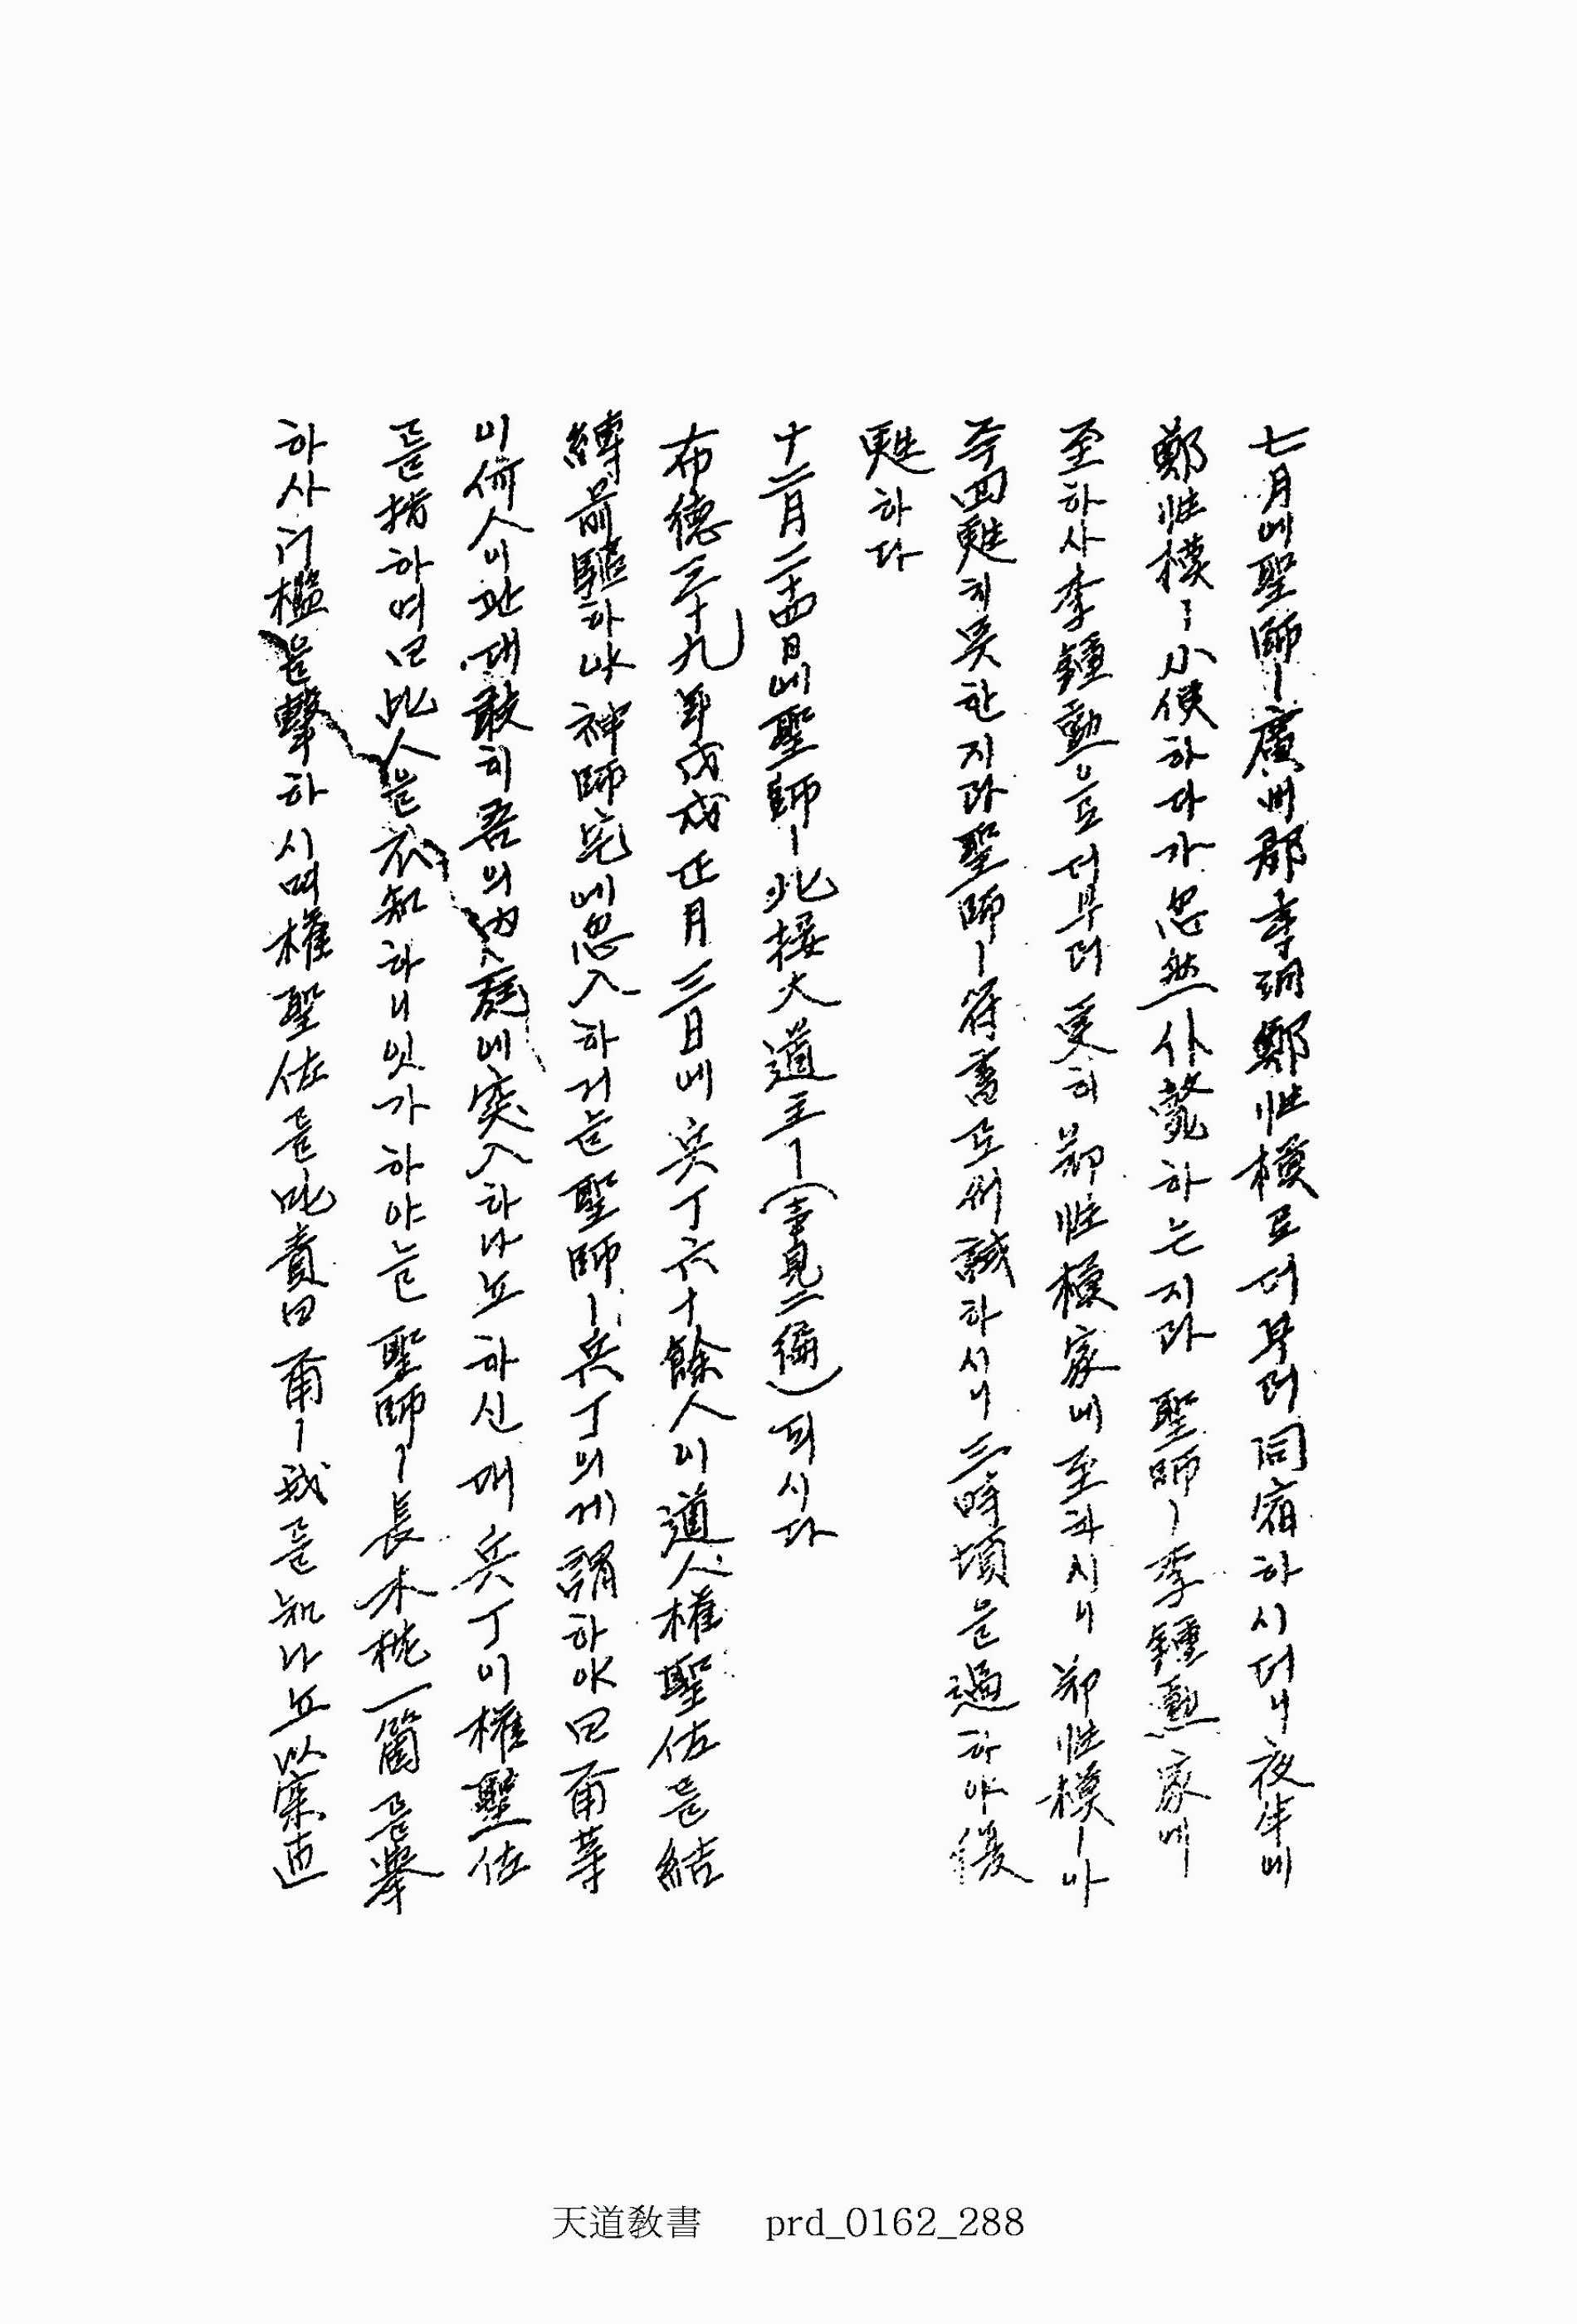 七月에聖師ㅣ廣州郡李㺬鄭性模로더부러同宿하시더니夜半에
鄭性模ㅣ小便하다가忽然仆斃하는지라聖師ㅣ李鍾勳家에
至하사李鍾勳으로더부러更히鄭性模家에至하시니鄭性模ㅣ아
즉回甦치못한지라聖師ㅣ符書로써誠하시니三時頃을過하야復
甦하다
十二月二十四日에聖師ㅣ北接大道主ㅣ(事見二編)되시다
布德三十九年戊戌正月三日에兵丁六十餘人이道人權聖佐를結
縛前驅하야神師宅에忽入하거늘聖師ㅣ兵丁의게謂하야曰爾等
이何人이관대敢히吾의內庭에突入하나뇨하신대兵丁이權聖佐
를指하며曰此人을不知하니잇가하야늘聖師ㅣ長木枕一箇를擧
하사门檻을擊하시며權聖佐를叱責曰爾ㅣ我를知나뇨以寒酒
天道敎書 prd_0162_288